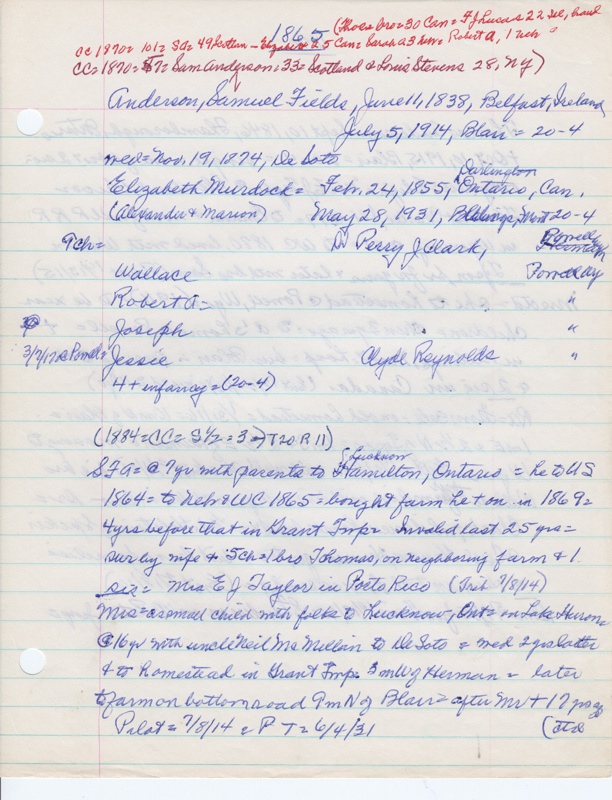 1865 (Thos bro = 30 Can = F J Lucas 22 Del,
CC 1870 = 101 = SA = 49 Scotten - Elizabeth 25 Can = Sarah A 3 Nebr = Robert A, 1 Neb
CC = 1870 = 57 = Sam Anderson = 33 = Scotland & Louis Stevens 28, NY)
Anderson, Samuel Fields, June 11, 1838, Belfast, Ireland
July 5, 1914, Blair = 20-4
med = Nov. 19, 1874, De Soto
Darlington
Elizabeth Murdock = Febr. 24, 1855, Ontario, Can.
(Alexander & Marion) May 28, 1931, Billings, Mont 20-4
9 ch =
Dr Perry J Clark, Powell
Wallace Powell Wy
Robert A = "
Joseph "
3/7/17 @ Powell Jessie Clyde Reynolds "
4 + infancy = (20-4)
(1884 = CC = S½ = 3 = T20 R11)
Lucknow
SFA = @ 7yr with parents to Hamilton, Ontario = he to US
1864 = to Nebr & WC 1865 = bought farm he t on in 1869 =
4 yrs before that in Grant Tmp = Invalid last 25 yrs =
sur by wife & 5ch = 1 bro Thomas, on neighboring farm & 1
sis = Mrs E J Taylor in Porto Rico (Trib 7/8/14)
Mrs = as small child with folks to Lucknow, Ont = on Lake Huron =
@ 16 yr with uncle Neil McMillan to De Soto = med 2 yrs later
& to Homestead in Grant Tmp. 3 m W of Herman = later
to farm on bottom road 9 m N of Blair = after Mr t 17 yrs ago
Pilot = 7/8/14 = P T = 6/4/31